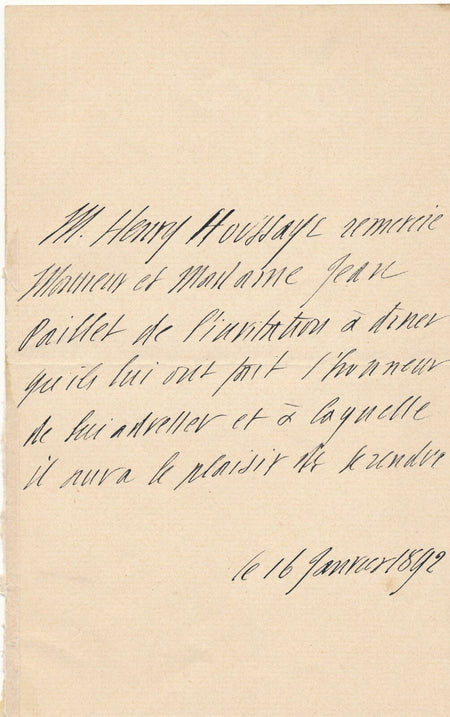 M. Henry Houssaye remercie
Monsieur et Madame Jean
Paillet de l'invitation à diner
qu'ils lui ont fait l'honneur
de lui adresser et à laquelle
il aura le plaisir de se rendre
le 16 Janvier 1892